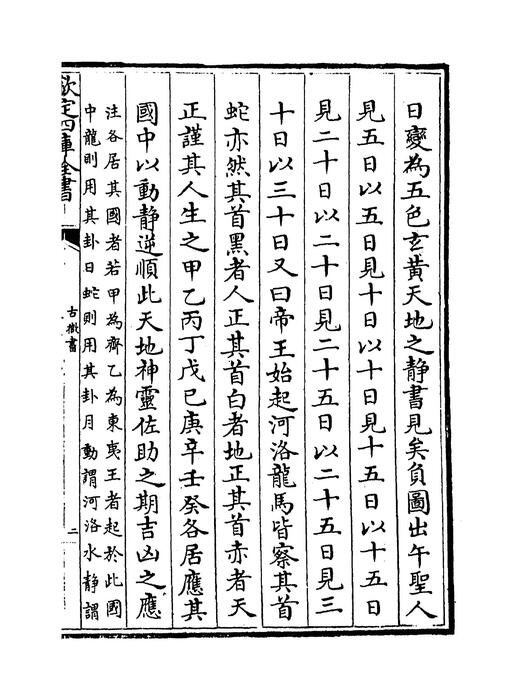 日變為五色玄黃天地之静書見矣負圖出午聖人
見五日以五日見十日以十日見十五日以十五日
見二十日以二十日見二十五日以二十五日見三
十日以三十日又曰帝王始起河洛龍馬皆察其首
蛇亦然其首黑者人正其首白者地正其首赤者天
正謹其人生之甲乙丙丁戊己庚辛壬癸各居應其
國中以動静逆順此天地神靈佐助之期吉凶之應
注各居其國者若甲為齊乙為東夷王者起於此國
中龍則用其卦日蛇則用其卦月動謂河洛水静謂
欽定四庫全書
古微書
二